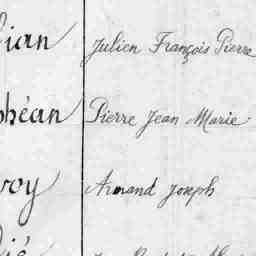 ian Julien François Pierre
phéan Pierre Jean Marie
roy Armand Joseph